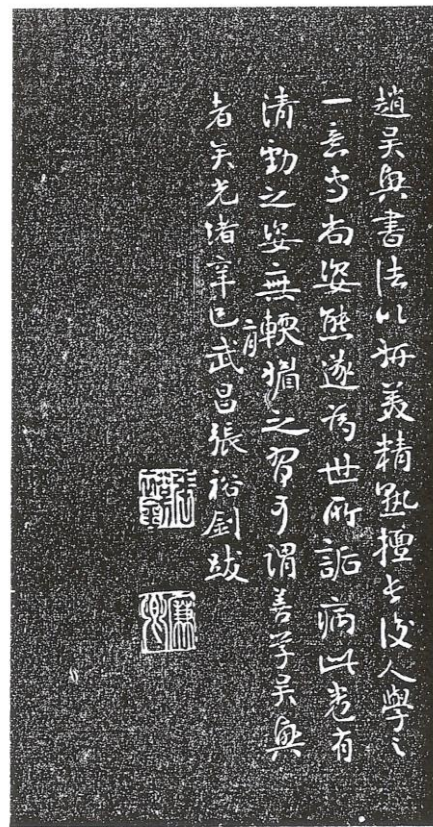 趙吳興書法以妍美精熟擅長後人學之
一意専尚姿態遂為世所詬病此卷有
清勁之姿無輭媚之習可謂善学吳興
者矣光緒辛巳武昌張裕釗跋
張裕釗
廉卿